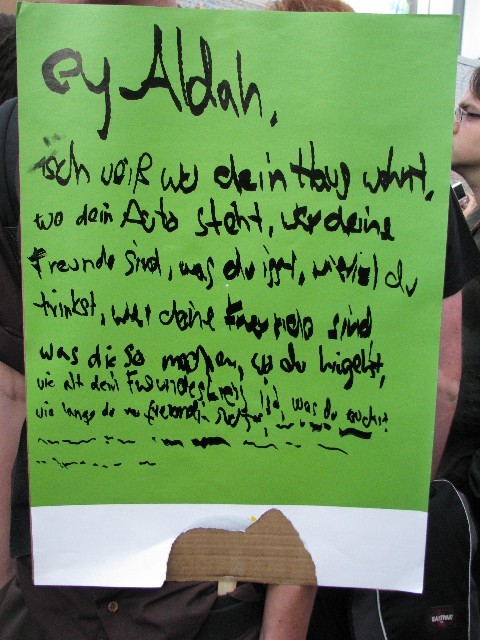 ey Aldah,
isch weiß wo dein Haus wohnt,
wo dein Auto steht, wer deine
freunde sind, was du isst, wieviel du
trinkst, wer deine sind
was die so machen, wo du hingehst,
wie alt dein Freundeskreis ist, was du suchst
wie lange du
EASTPAK